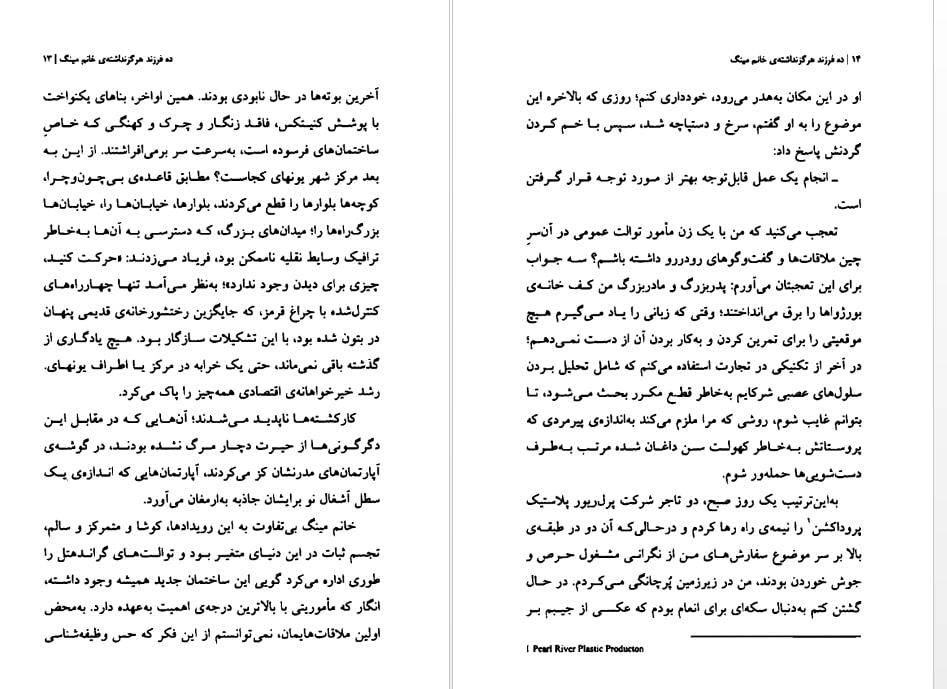 ده فرزند هرگزنداشته‌ی خانم مینگ | ۱۳
آخرین بوته‌ها در حال نابودی بودند. همین اواخر، بناهای یکنواخت
با پوشش کنیتکس، فاقد زنگار و چرک و کهنگی که خاصِ
ساختمان‌های فرسوده است، به‌سرعت سر برمی‌افراشتند. از این به
بعد مرکز شهر یونهای کجاست؟ مطابق قاعده‌ی بی‌چون‌وچرا،
کوچه‌ها بلوارها را قطع می‌کردند، بلوارها، خیابان‌ها را، خیابان‌ها
بزرگ‌راه‌ها را؛ میدان‌های بزرگ، که دسترسی به آن‌ها به‌خاطر
ترافیک وسایط نقلیه ناممکن بود، فریاد می‌زدند: «حرکت کنید،
چیزی برای دیدن وجود ندارد»؛ به‌نظر می‌آمد تنها چهارراه‌های
کنترل‌شده با چراغ قرمز، که جایگزین رختشورخانه‌ی قدیمی پنهان
در بتون شده بود، با این تشکیلات سازگار بود. هیچ یادگاری از
گذشته باقی نمی‌ماند، حتی یک خرابه در مرکز یا اطراف یونهای.
رشد خیرخواهانه‌ی اقتصادی همه‌چیز را پاک می‌کرد.
کارکشته‌ها ناپدید می‌شدند؛ آن‌هایی که در مقابل این
دگرگونی‌ها از حیرت دچار مرگ نشده بودند، در گوشه‌ی
آپارتمان‌های مدرنشان کز می‌کردند، آپارتمان‌هایی که اندازه‌ی یک
سطل آشغال نو برایشان جاذبه به‌ارمغان می‌آورد.
خانم مینگ بی‌تفاوت به این رویدادها، کوشا و متمرکز و سالم،
تجسم ثبات در این دنیای متغیر بود و توالت‌های گراندهتل را
طوری اداره می‌کرد گویی این ساختمان جدید همیشه وجود داشته،
انگار که مأموریتی با بالاترین درجه‌ی اهمیت به‌عهده دارد. به‌محض
اولین ملاقات‌هایمان، نمی‌توانستم از این فکر که حس وظیفه‌شناسی
۱۴ | ده فرزند هرگزنداشته‌ی خانم مینگ
او در این مکان به‌هدر می‌رود، خودداری کنم؛ روزی که بالاخره این
موضوع را به او گفتم، سرخ و دستپاچه شد، سپس با خم کردن
گردنش پاسخ داد:
ـ انجام یک عمل قابل‌توجه بهتر از مورد توجه قرار گرفتن
است.
تعجب می‌کنید که من با یک زن مأمور توالت عمومی در آن‌سرِ
چین ملاقات‌ها و گفت‌وگوهای رودررو داشته باشم؟ سه جواب
برای این تعجبتان می‌آورم: پدربزرگ و مادربزرگ من کف خانه‌ی
بورژواها را برق می‌انداختند؛ وقتی که زبانی را یاد می‌گیرم هیچ
موقعیتی را برای تمرین کردن و به‌کار بردن آن از دست نمی‌دهم؛
در آخر از تکنیکی در تجارت استفاده می‌کنم که شامل تحلیل بردن
سلول‌های عصبی شرکایم به‌خاطر قطع مکرر بحث می‌شود، تا
بتوانم غایب شوم، روشی که مرا ملزم می‌کند به‌اندازه‌ی پیرمردی که
پروستاتش به‌خاطر کهولت سن داغان شده مرتب به‌طرف
دست‌شویی‌ها حمله‌ور شوم.
به‌این‌ترتیب یک روز صبح، دو تاجر شرکت پرل‌ریور پلاستیک
پروداکشن۱ را نیمه‌ی راه رها کردم و درحالی‌که آن دو در طبقه‌ی
بالا بر سر موضوع سفارش‌های من از نگرانی مشغول حرص و
جوش خوردن بودند، من در زیرزمین پُرچانگی می‌کردم. در حال
گشتن کتم به‌دنبال سکه‌ای برای انعام بودم که عکسی از جیبم بر
1 Pearl River Plastic Producton